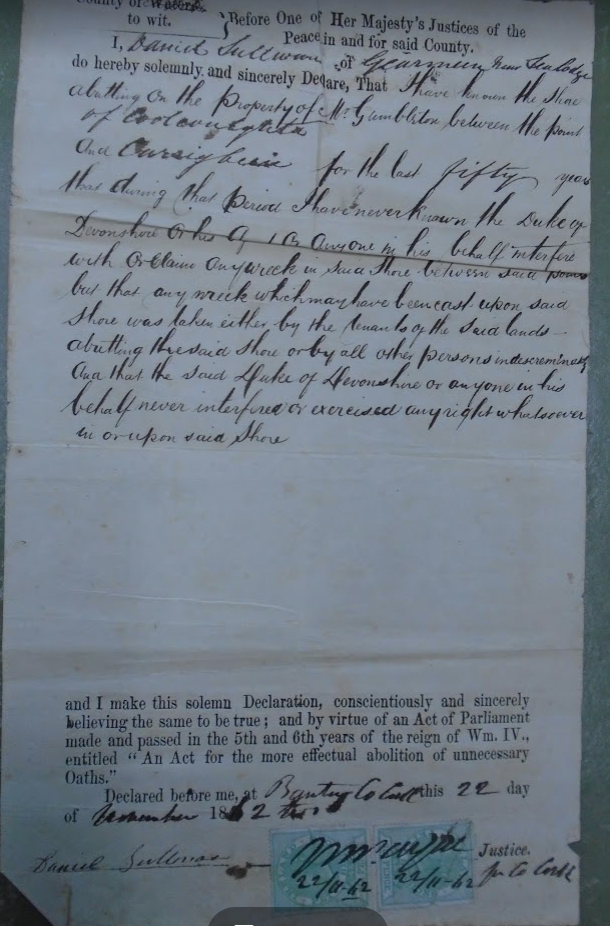 County of
to wit.
Before One of Her Majesty's Justices of the
Peace in and for said County.
I, Daniel Sullivan of near Sealodge
do hereby solemnly and sincerely Declare, That I have known the Shore
abutting on the property of Mr Gumbleton between the point
of
and for the last fifty years
that during that period I have never known the Duke of
Devonshire or his or anyone in his behalf interfere
with or claim any wreck in said Shore between said points
but that any wreck which may have been cast upon said
Shore was taken either by the tenants of the said lands
abutting the said Shore or by all other persons indiscriminately
And that the said Duke of Devonshire or anyone in his
behalf never interfered or exercised any right whatsoever
in or upon said Shore
and I make this solemn Declaration, conscientiously and sincerely
believing the same to be true; and by virtue of an Act of Parliament
made and passed in the 5th and 6th years of the reign of Wm. IV.,
entitled "An Act for the more effectual abolition of unnecessary
Oaths."
Declared before me, at Bantry Co Cork this 22 day
of November 1862
Justice.
Daniel Sullivan
22/11-62 22/11-62 for Co Cork